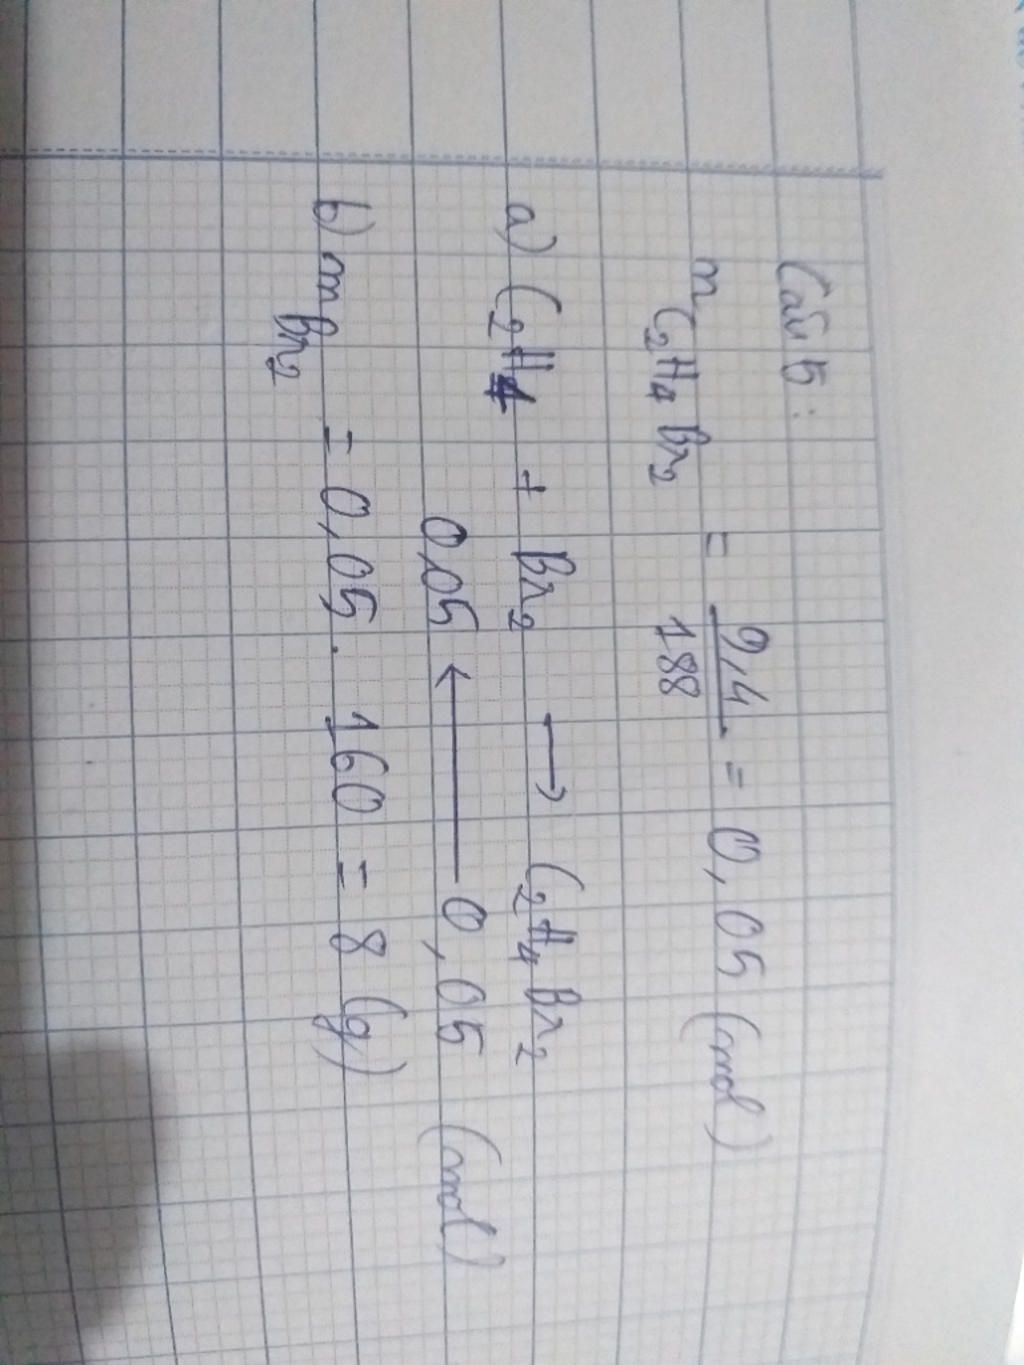 Câu 5:
n C₂H₄Br₂ = 9,4/188 = 0,05 (mol)
a) C₂H₄ + Br₂ → C₂H₄Br₂
0,05 ← 0,05 (mol)
b) m Br₂ = 0,05 . 160 = 8 (g)